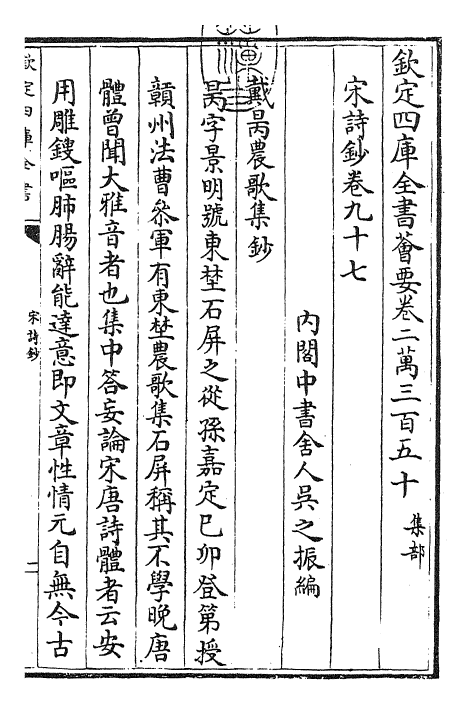 欽定四庫全書薈要卷二萬三百五十 集部
宋詩鈔卷九十七
內閣中書舍人吳之振編
戴昺農歌集鈔
昺字景明號東埜石屏之從孫嘉定已卯登第授
贛州法曹叅軍有東埜農歌集石屏稱其不學晚唐
體曾聞大雅音者也集中答妄論宋唐詩體者云安
用雕鎪嘔肺腸辭能達意即文章性情元自無今古
欽定四庫全書
宋詩鈔
一